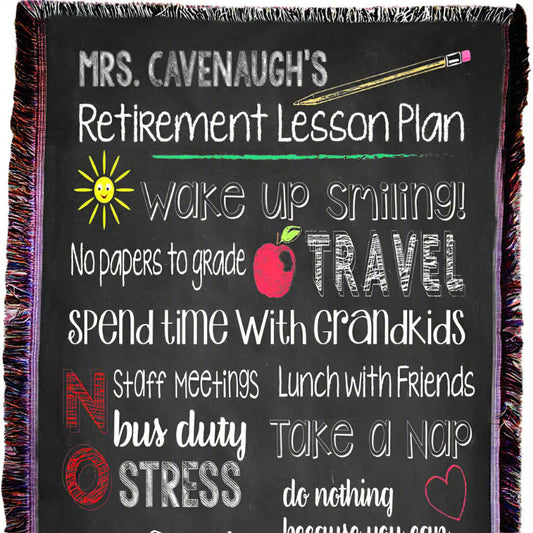 MRS. CAVENAUGH'S
Retirement Lesson Plan
Wake up smiling!
No papers to grade
TRAVEL
Spend time with Grandkids
NO
Staff Meetings
bus duty
STRESS
Lunch with Friends
Take a Nap
do nothing
because you can